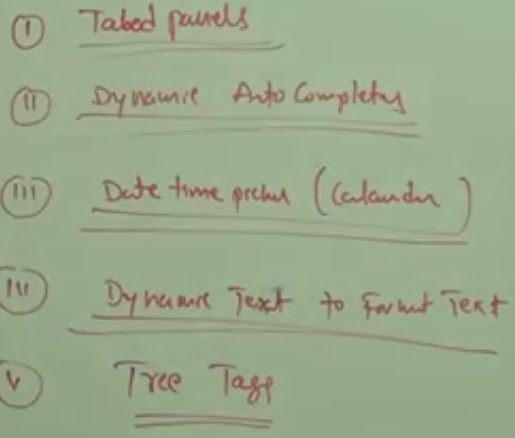 (I) Tabed panels
(II) Dynamic Auto Completes
(III) Date time picker (Calander)
(IV) Dynamic Text to Format Text
(V) Tree Tags